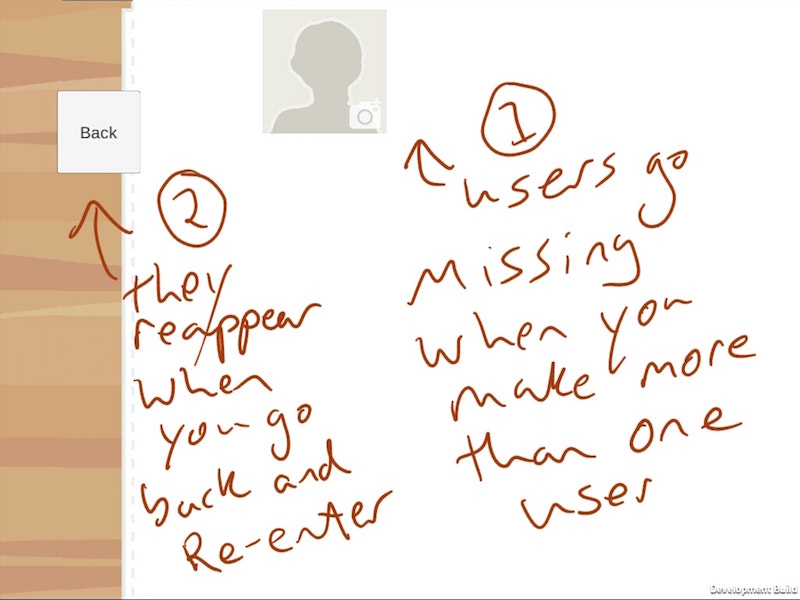 Back
1
users go
missing
when you
make more
than one
user
2
they
reappear
when
you go
back and
Re-enter
Development Build